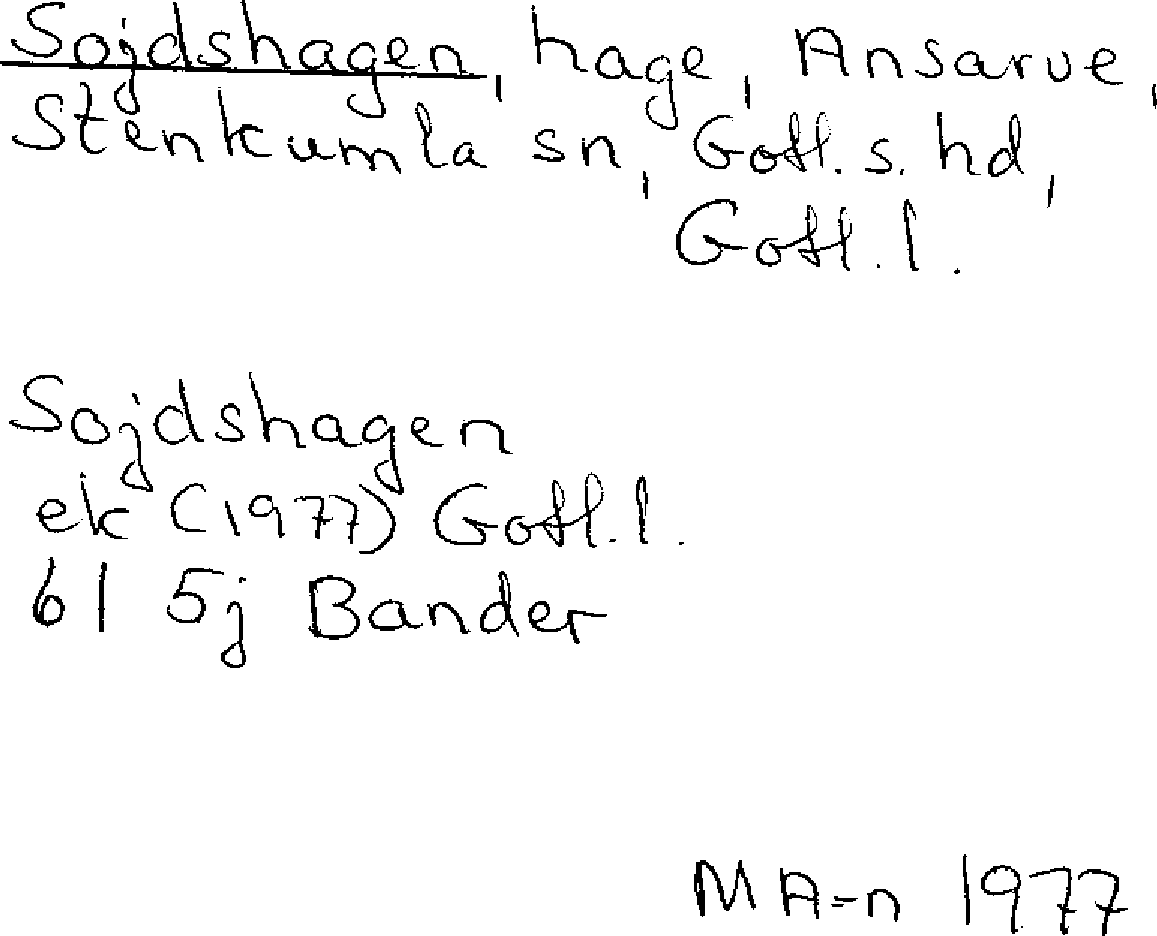 Sojdshagen, hage, Ansarve,
Stenkumla sn, Gotl. s. hd,
Gotl. l.
Sojdshagen
ek (1977) Gotl. l.
6 I 5j Bander
M A=n 1977